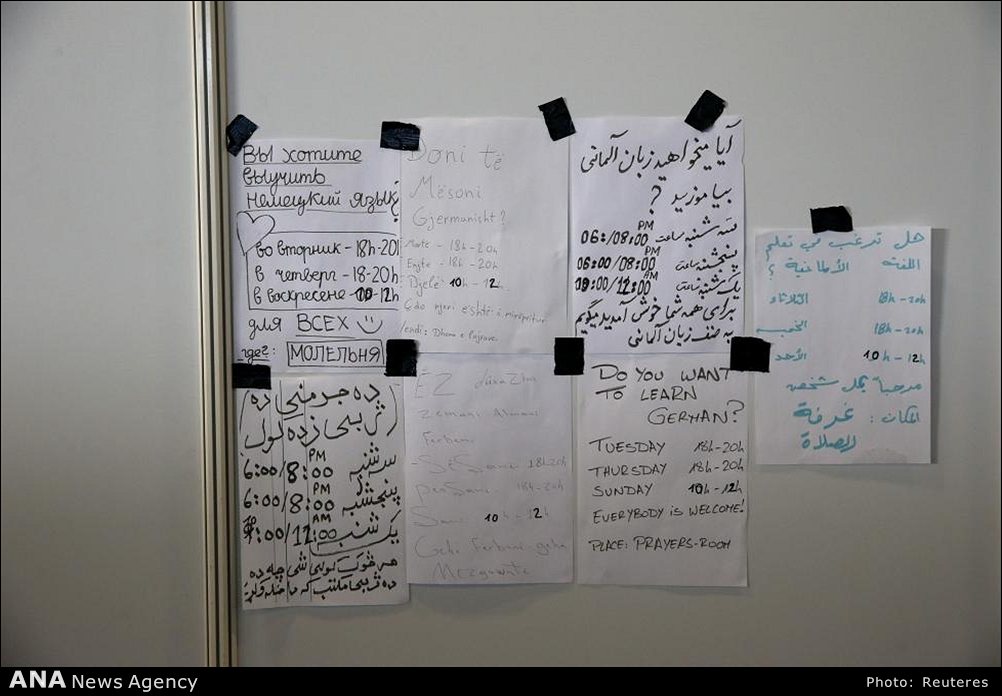 Вы хотите
выучить
немецкий язык?
во вторник - 18h-20h
в четверг - 18-20h
в воскресене - 10-12h
для ВСЕХ
где?: МОЛЕЛЬНЯ
Doni të
Mësoni
Gjermanisht?
Marte - 18h-20h
Enjte - 18h-20h
Djelë - 10h-12h
Çdo njeri është i mirëpritur
Vendi: Dhoma e
آیا میخواهید زبان آلمانی
بیاموزید ؟
سه شنبه ساعت 06:/08:00 PM
پنجشنبه ساعت 06:00/08:00 PM
یک شنبه ساعت 10:00/12:00 AM
برای همه شما خوش آمدید میگویم
به صنف زبان آلمانی
هل ترغب في تعلم
اللغة الألمانية ؟
الثلاثاء 18h-20h
الخميس 18h-20h
الأحد 10h-12h
مرحباً بكل شخص
المكان: غرفة
الصلاة
سه شنبه 6:00/8:00 PM
پنجشنبه 6:00/8:00 PM
یک شنبه 10:00/12:00 AM
EZ
Zemani Almani
Ferbem
- SêSemi 18h-20h
PenSemi 18h-20h
10h-12h
DO YOU WANT
TO LEARN
GERMAN?
TUESDAY 18h-20h
THURSDAY 18h-20h
SUNDAY 10h-12h
EVERYBODY IS WELCOME!
PLACE: PRAYERS-ROOM
ANA News Agency
Photo: Reuteres